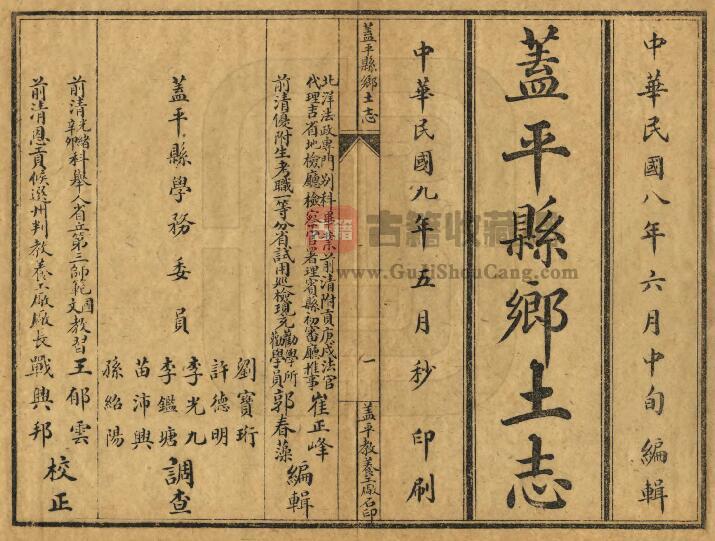 中華民國八年六月中旬編輯
蓋平縣鄉土志
中華民國九年五月秒印刷
蓋平縣鄉土志
一
蓋平教養工廠石印
北洋法政專門別科畢業前清附貢庚戌法官
代理吉省地檢廳檢察官署理賓縣初審廳推事崔正峰
前清優附生考職一等分省試用巡檢現充勸學所勸學員郭春藻
編輯
蓋平縣學務委員
劉寶珩
許德明
李光九
李鑑塘
苗沛興
孫紹陽
調查
前清光緒辛卯科舉人省立第三師範國文教習王郁雲
前清恩貢候選州判教養工廠廠長戰興邦
校正
古籍
古籍收藏
www.GuJiShouCang.com